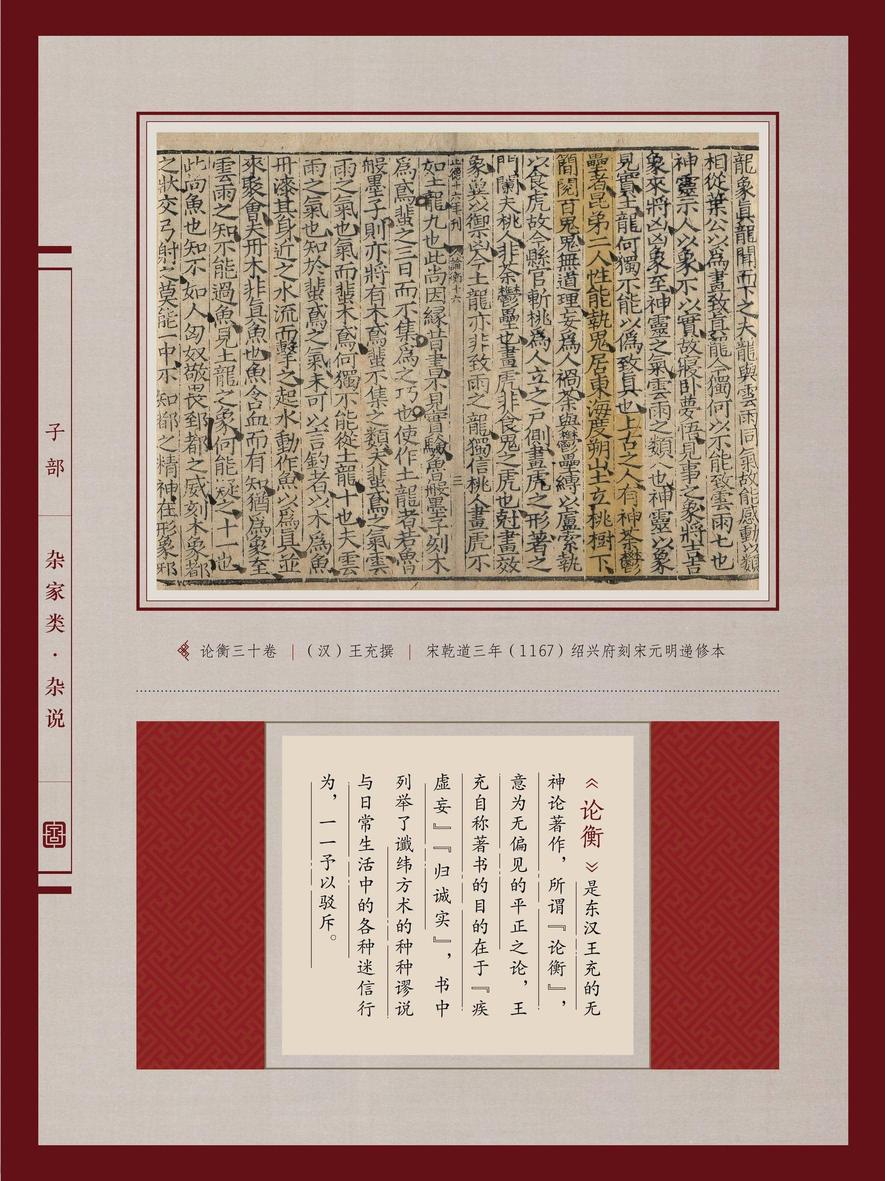 龍象真龍聞而下之夫龍與雲雨同氣故能感動以類
相從葉公以為畫致真龍今獨何以不能致雲雨七也
神靈示人以象不以實故寢臥夢悟見事之象將吉吉
象來將凶凶象至神靈之氣雲雨之類八也神靈以象
見實土龍何獨不能以偽致真也上古之人有神荼鬱
壘者昆弟二人性能執鬼居東海度朔山上立桃樹下
簡閱百鬼鬼無道理妄為人禍荼與鬱壘縛以盧索執
以食虎故今縣官斬桃為人立之戶側畫虎之形著之
門闌夫桃人非荼鬱壘也畫虎非食鬼之虎也尅畫效
象冀以禦凶今土龍亦非致雨之龍獨信桃人畫虎不
正德十六年刊 論衡十六 三
如土龍九也此尚因緣昔書不見實驗魯般墨子刻木
為鳶蜚之三日而不集為之巧也使作土龍者若魯
般墨子則亦將有木鳶蜚不集之類夫蜚鳶之氣雲
雨之氣也氣而蜚木鳶何獨不能從土龍十也夫雲
雨之氣也知於蜚鳶之氣未可以言釣者以木為魚
丹漆其身近之水流而擊之起水動作魚以為真並
來聚會夫丹木非真魚也魚含血而有知猶為象至
雲雨之知不能過魚見土龍之象何能疑之十一也
此尚魚也知不如人匈奴敬畏郅都之威刻木象都
之狀交弓射之莫能一中不知都之精神在形象邪
子部
杂家类·杂说
论衡三十卷 |(汉)王充撰 | 宋乾道三年(1167)绍兴府刻宋元明递修本
《论衡》是东汉王充的无
神论著作，所谓『论衡』，
意为无偏见的平正之论，王
充自称著书的目的在于『疾
虚妄』『归诚实』，书中
列举了谶纬方术的种种谬说
与日常生活中的各种迷信行
为，一一予以驳斥。